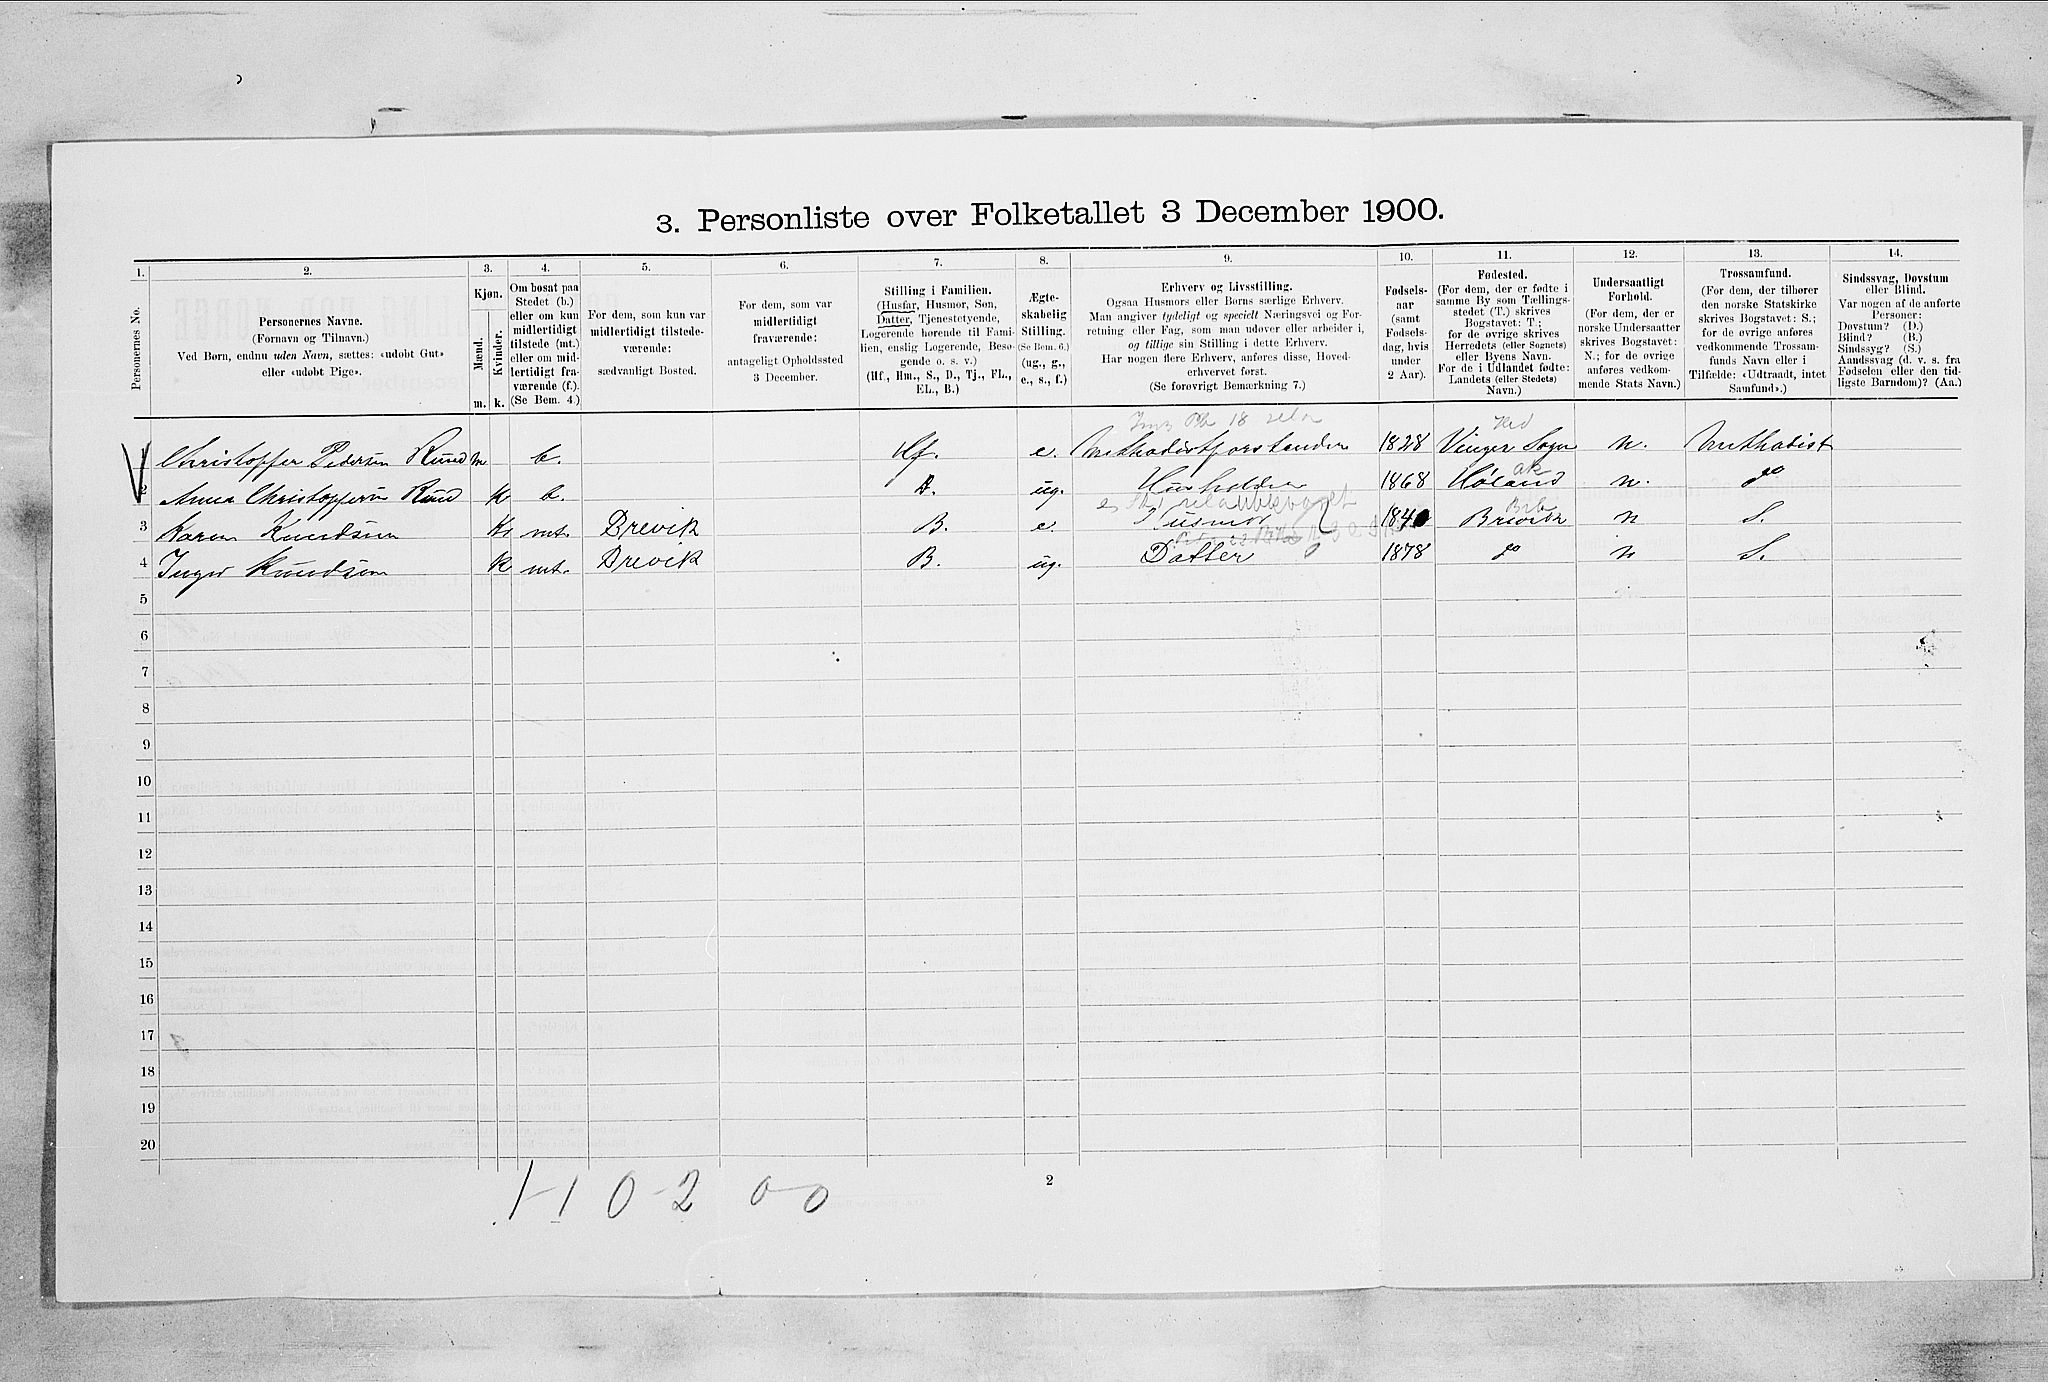 3. Personliste over Folketallet 3 December 1900.
1. 2. 3. 4. 5. 6. 7. 8. 9. 10. 11. 12. 13. 14.
Personernes No.
Personernes Navne.
(Fornavn og Tilnavn.)
Ved Børn, endnu uden Navn, sættes: «udøbt Gut»
eller «udøbt Pige».
Kjøn.
Mænd.
Kvinder.
m. k.
Om bosat paa
Stedet (b.)
eller om kun
midlertidigt
tilstede (mt.)
eller om mid-
lertidigt fra-
værende (f.).
(Se Bem. 4.)
For dem, som kun var
midlertidigt tilstede-
værende:
sædvanligt Bosted.
For dem, som var
midlertidigt
fraværende:
antageligt Opholdssted
3 December.
Stilling i Familien.
(Husfar, Husmor, Søn,
Datter, Tjenestetyende,
Logerende hørende til Fami-
lien, enslig Logerende, Besø-
gende o. s. v.)
(Hf., Hm., S., D., Tj., FL.,
EL., B.)
Ægte-
skabelig
Stilling.
(Se Bem. 6.)
(ug., g.,
e., s., f.)
Erhverv og Livsstilling.
Ogsaa Husmors eller Børns særlige Erhverv.
Man angiver tydeligt og specielt Næringsvei og For-
retning eller Fag, som man udøver eller arbeider i,
og tillige sin Stilling i dette Erhverv.
Har nogen flere Erhverv, anføres disse, Hoved-
erhvervet først.
(Se forøvrigt Bemærkning 7.)
Fødsels-
aar
(samt
Fødsels-
dag, hvis
under
2 Aar).
Fødested.
(For dem, der er fødte i
samme By som Tællings-
stedet (T.) skrives
Bogstavet: T.;
for de øvrige skrives
Herredets (eller Sognets)
eller Byens Navn.
For de i Udlandet fødte:
Landets (eller Stedets)
Navn.)
Undersaatligt
Forhold.
(For dem, der er
norske Undersaatter
skrives Bogstavet:
N.; for de øvrige
anføres vedkom-
mende Stats Navn.)
Trossamfund.
(For dem, der tilhører
den norske Statskirke
skrives Bogstavet: S.;
for de øvrige anføres
vedkommende Trossam-
funds Navn eller i
Tilfælde: «Udtraadt, intet
Samfund».)
Sindssvag, Døvstum
eller Blind.
Var nogen af de anførte
Personer:
Døvstum? (D.)
Blind? (B.)
Sindssyg? (S.)
Aandssvag (d. v. s. fra
Fødselen eller den tid-
ligste Barndom)? (Aa.)
1 Christopher Pedersen Ruud m b. Hf. e. Methodistforstander 1828 Vinger Sogn n. Methodist
2 Anna Christophersen Ruud K b. D. ug. Husholder 1868 Høland ak n. do
3 Karen Knudsen K mt. Brevik B. e. Husmor 1840 Brevik n S.
4 Inger Knudsen K mt. Brevik B. ug. Datter 1878 do n S.
5
6
7
8
9
10
11
12
13
14
15
16
17
18
19
20
2
1-1 0-2 0-0